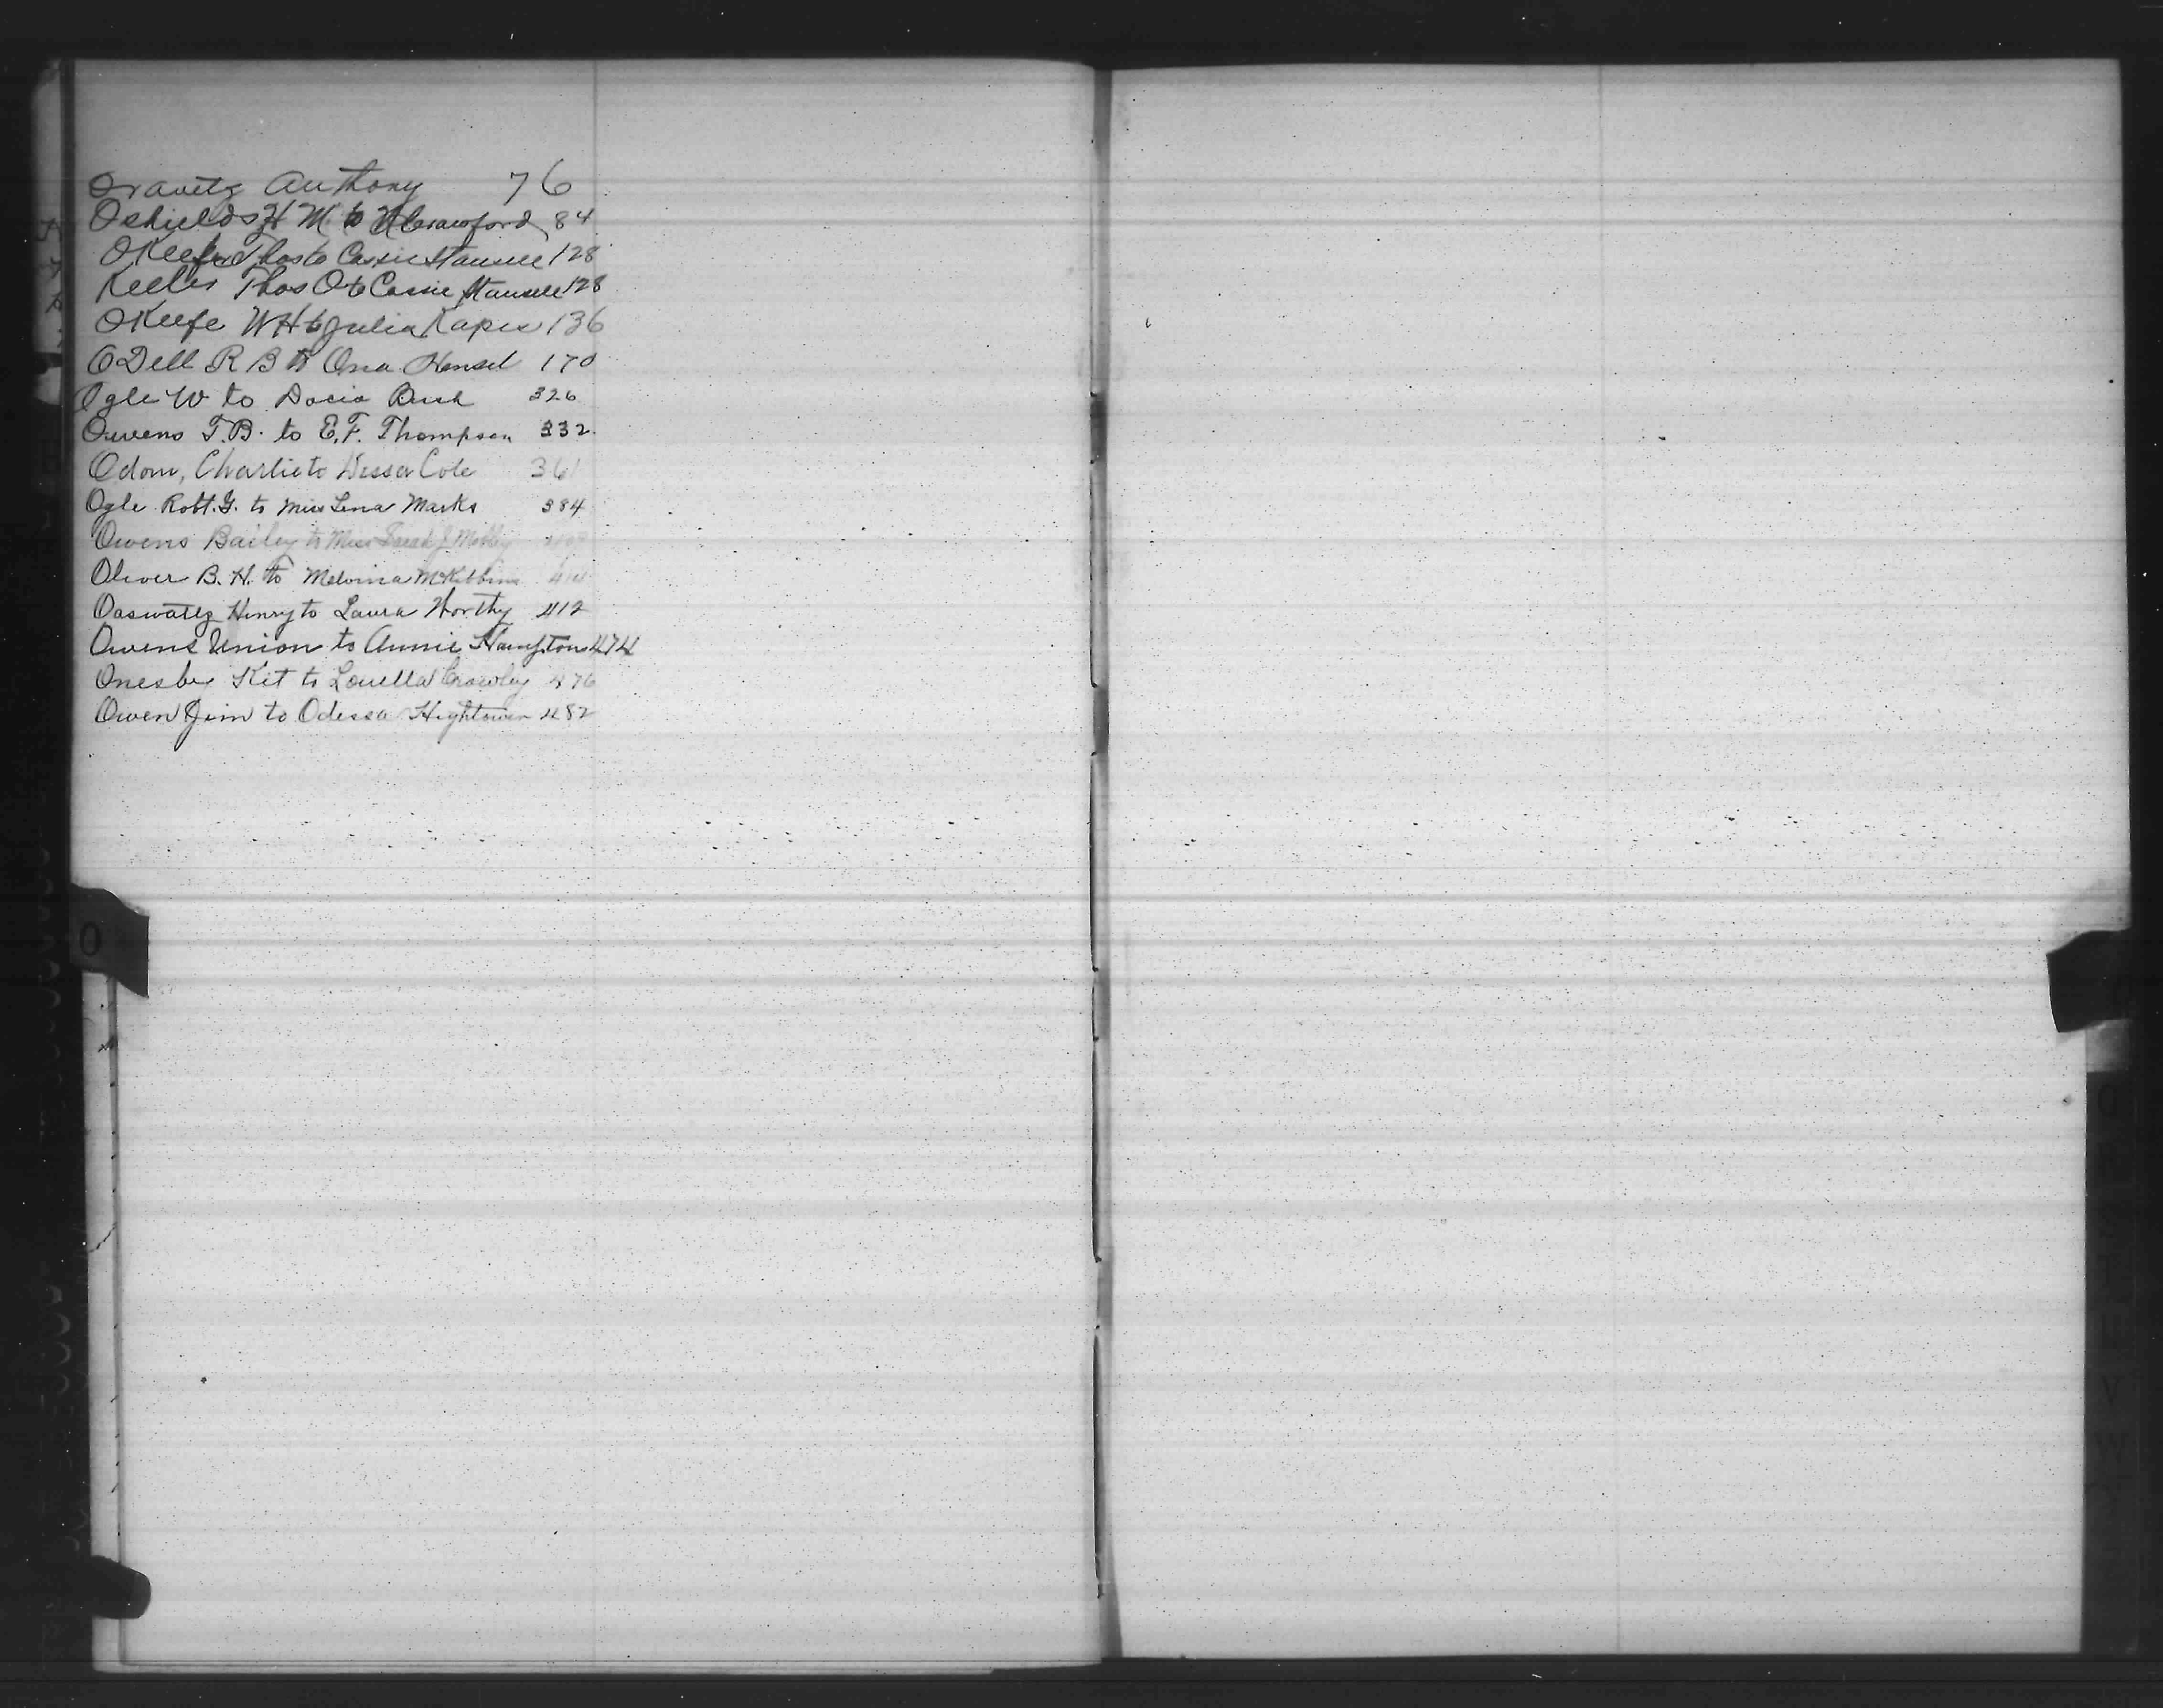 Oravetz Anthony 76
Oshields H M to Crawford 84
OKeefe Thos to Cassie Stansell 128
Keefes Thos O to Cassie Stansell 128
OKeefe W H to Julia Kapes 136
ODell R B to Ona Hensel 170
Ogle W to Docia Bush 326
Owens T.B. to E.F. Thompson 332
Odom, Charlie to Dessa Cole 361
Ogle Robt. G. to Miss Lena Marks 384
Owens Bailey to Miss Sarah J Mobley
Oliver B. H. to Melvina McKibbins
Oaswatz Henry to Laura Worthy 412
Owens Union to Annie Hampton 474
Onesby Kit to Louella Crowley 476
Owen Jim to Odessa Hightower 482
O